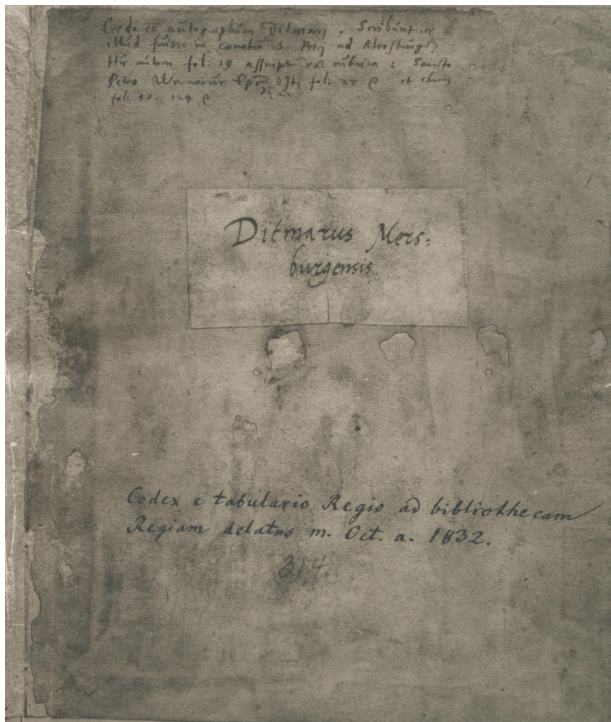 Credo e͞e autographum Ditmari. Scribunt
illud fuisse in S. Petri ad Mersburg
Hic autem fol: 19 rubrica: Sancto
Petro fol: 27 et
fol: 40. 124
Ditmarus Mers=
burgensis
Codex e tabulario Regio ad bibliothecam
Regiam delatus m. Oct. a. 1832.
314